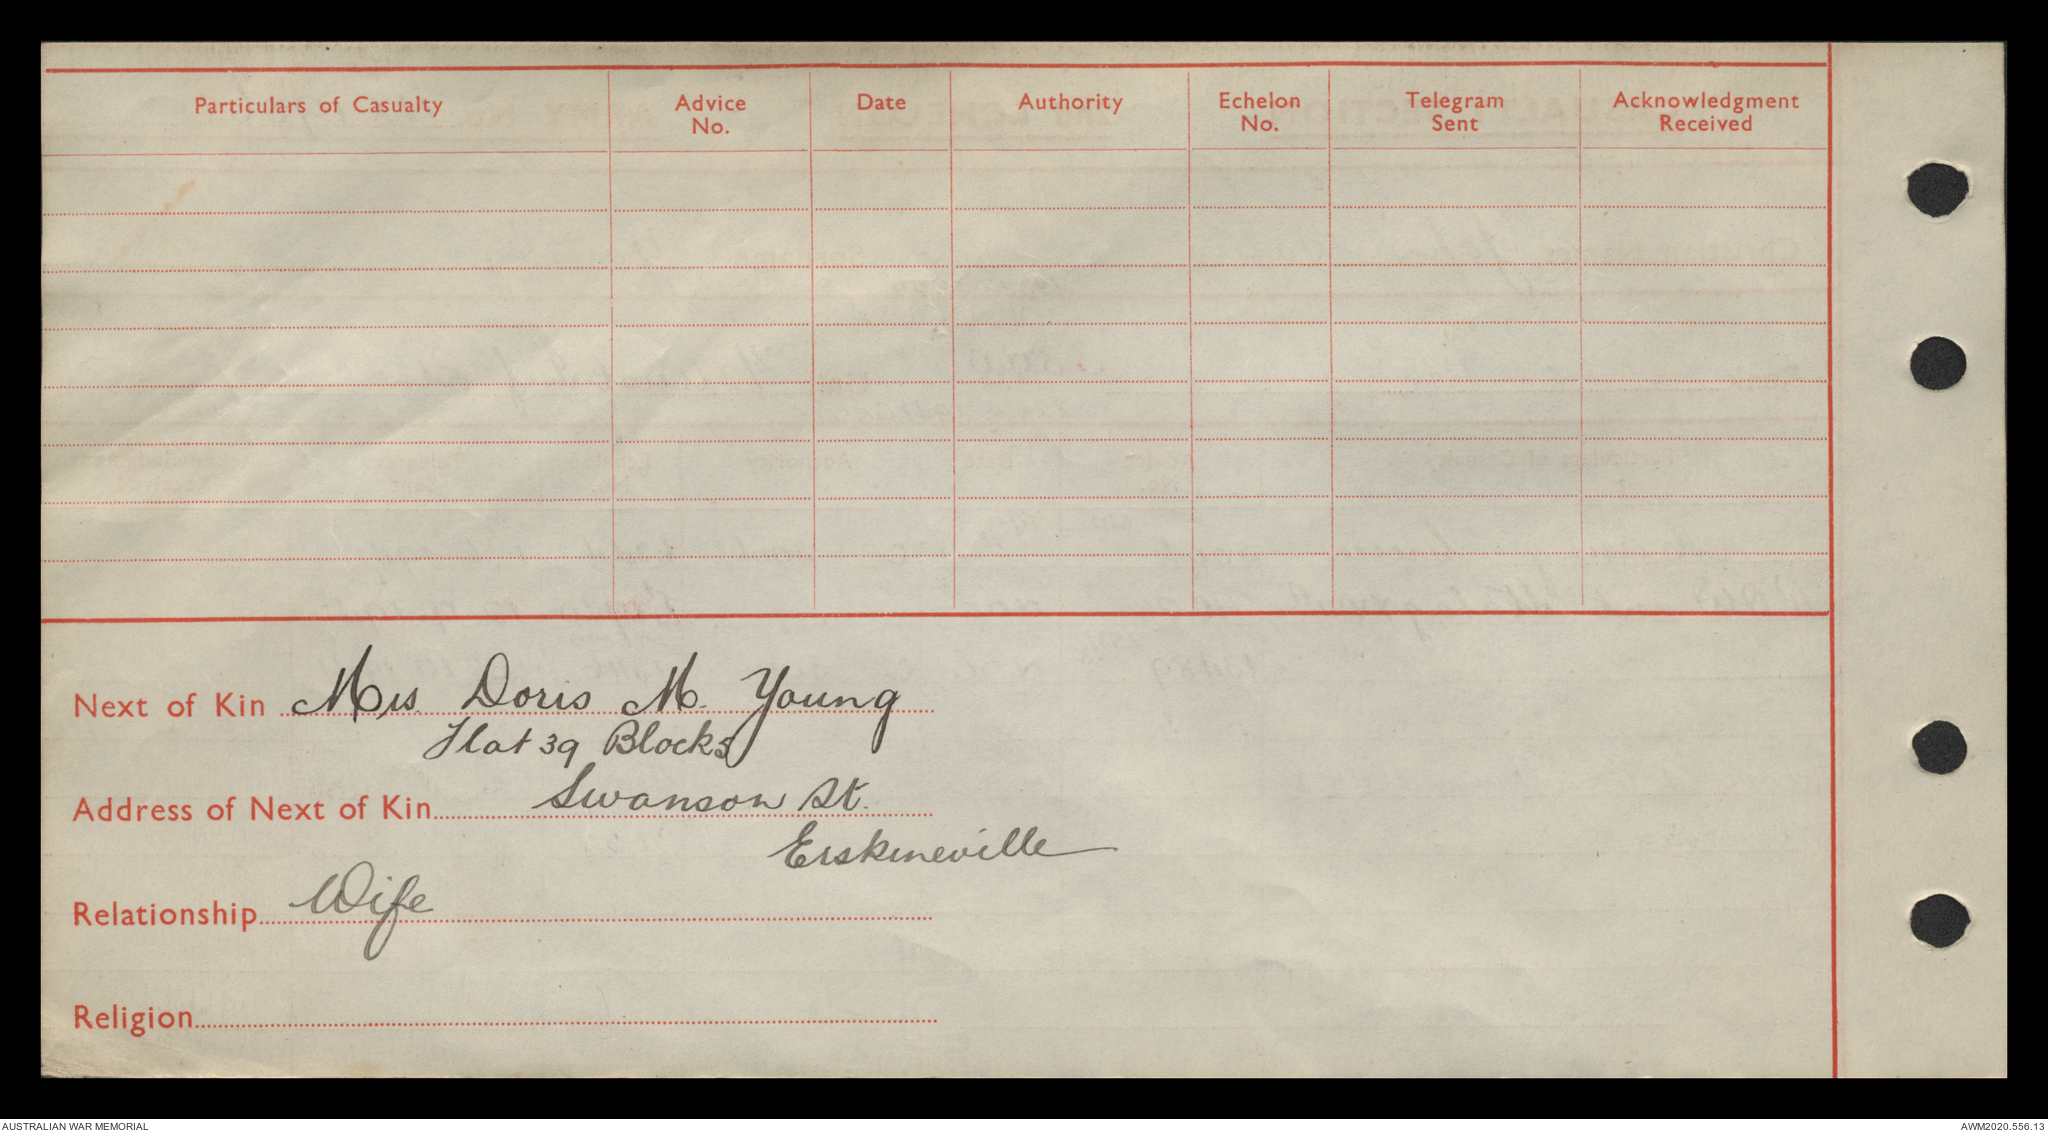 Particulars of Casualty Advice No. Date Authority Echelon No. Telegram Sent Acknowledgment Received
Next of Kin Mrs Doris M. Young
Flat 39 Blocks
Address of Next of Kin Swanson St.
Erskineville
Relationship Wife
Religion
AUSTRALIAN WAR MEMORIAL AWM2020.556.13